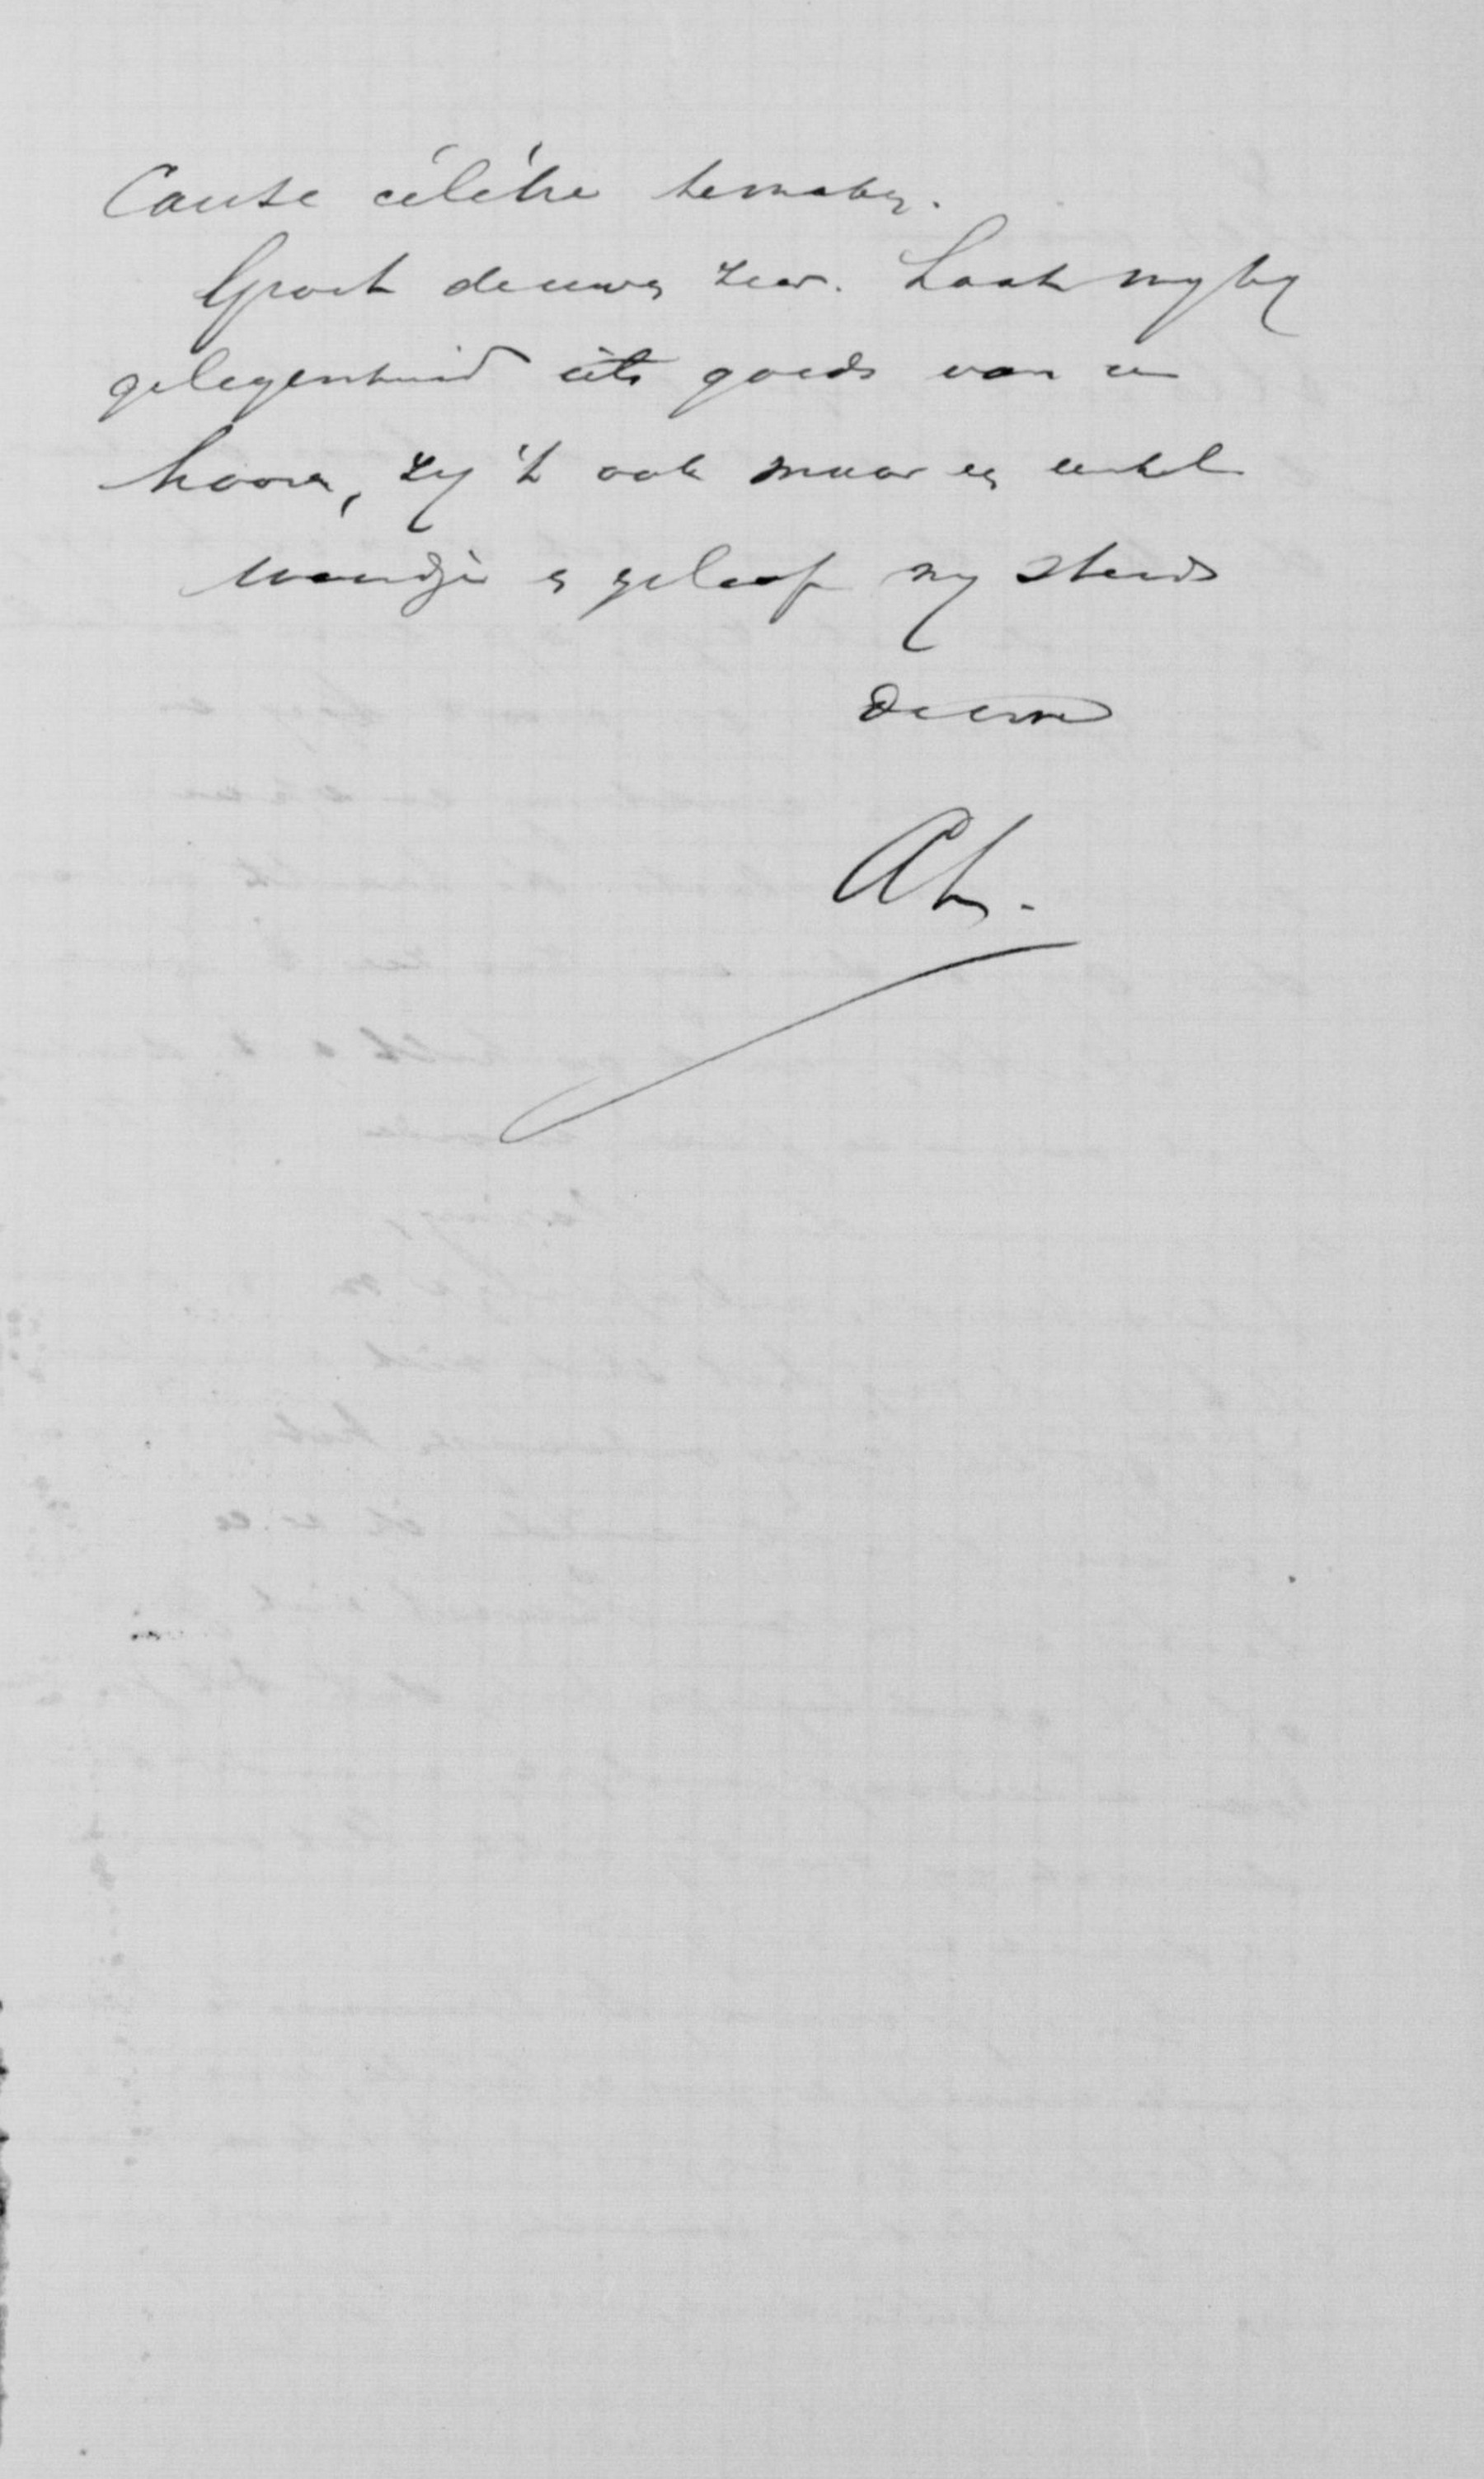 Cause célèbre temaken.
Groet de uwen zeer. Laat my by
gelegenheid iets goeds van u
hooren, zy 't ook maar een enkel
woordje en geloof my steeds